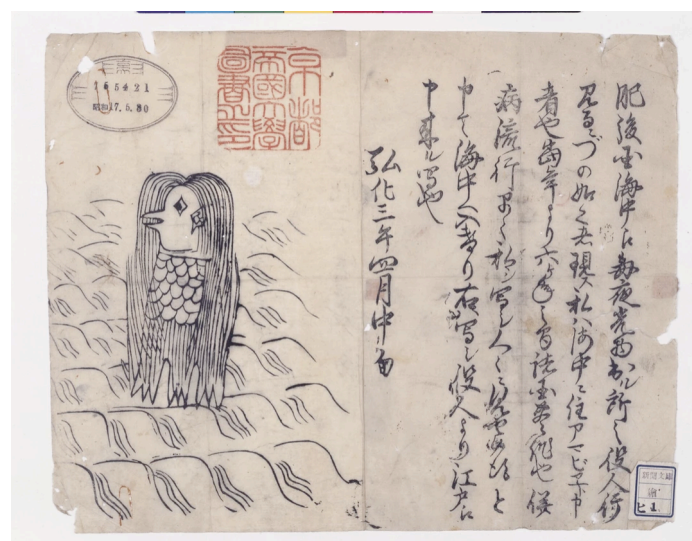 肥後国海中え毎夜光物出ル所之役人行
見るニづの如く者現ス私ハ海中ニ住アマビヱト申
者也当年より六ケ年之間諸国豊作也併
病流行早々私ヲ写シ人々ニ見セ候得と
申て海中へ入けり右写シ役人より江戸え
申来ル写也
弘化三年四月中旬
京都
帝國大學
圖書之印
昭和
新聞文庫